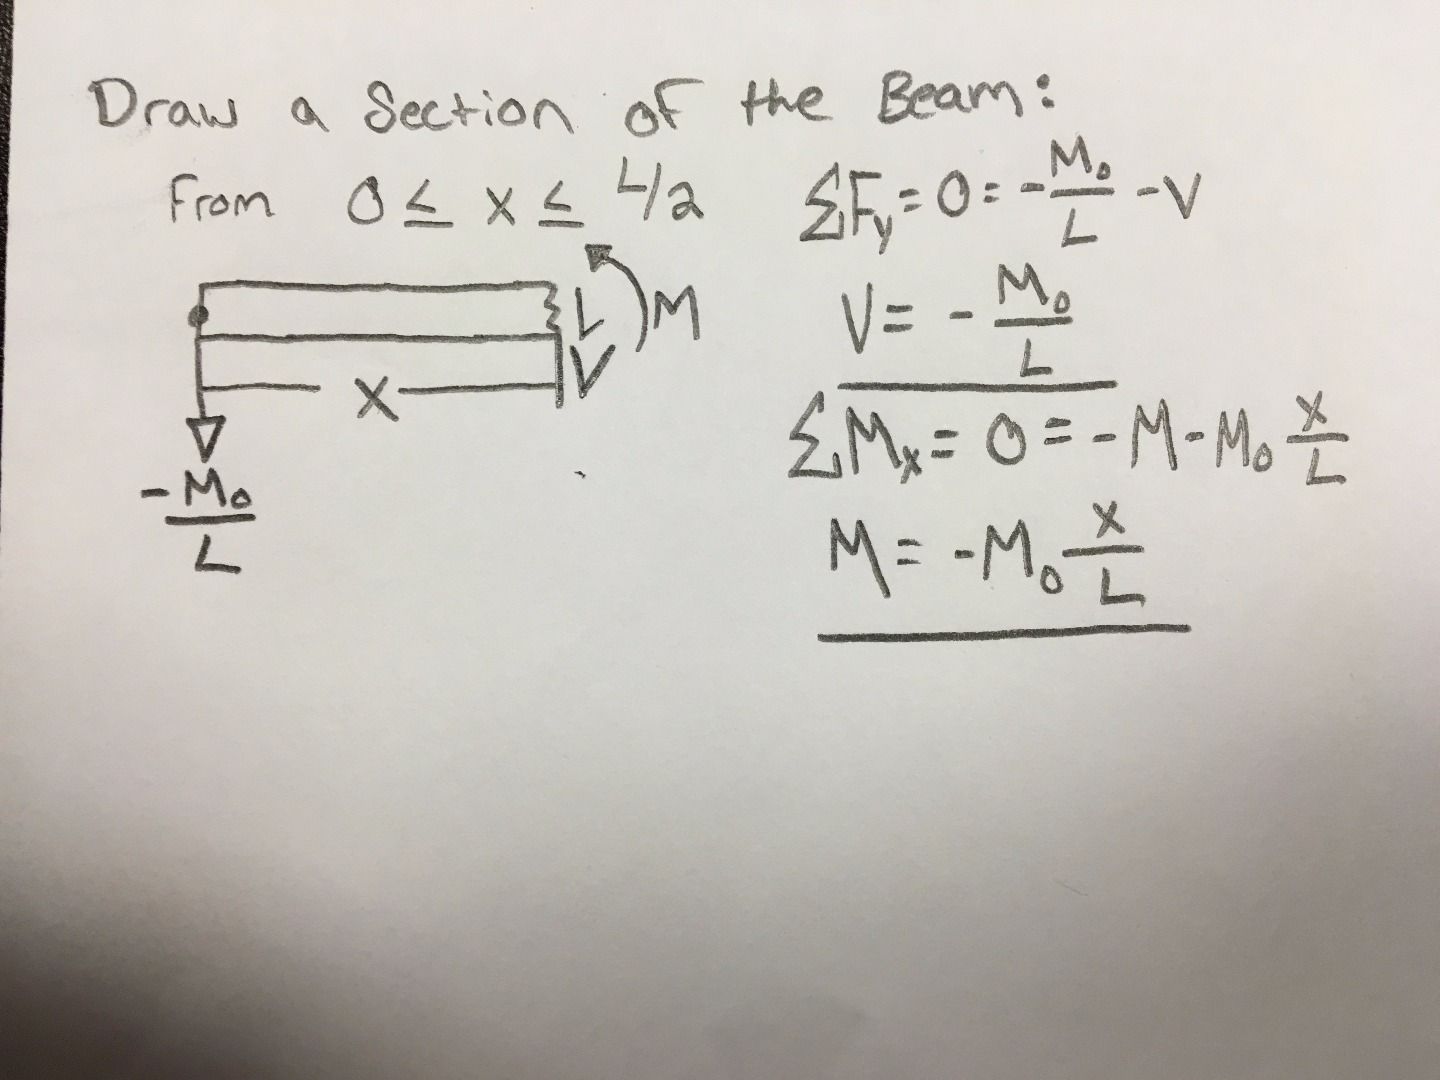 Draw a Section of the Beam:
From 0 ≤ x ≤ L/2
ΣFy = 0 = -M₀/L - V
V = -M₀/L
L M
V
x
-M₀/L
ΣMx = 0 = -M - M₀ x/L
M = -M₀ x/L